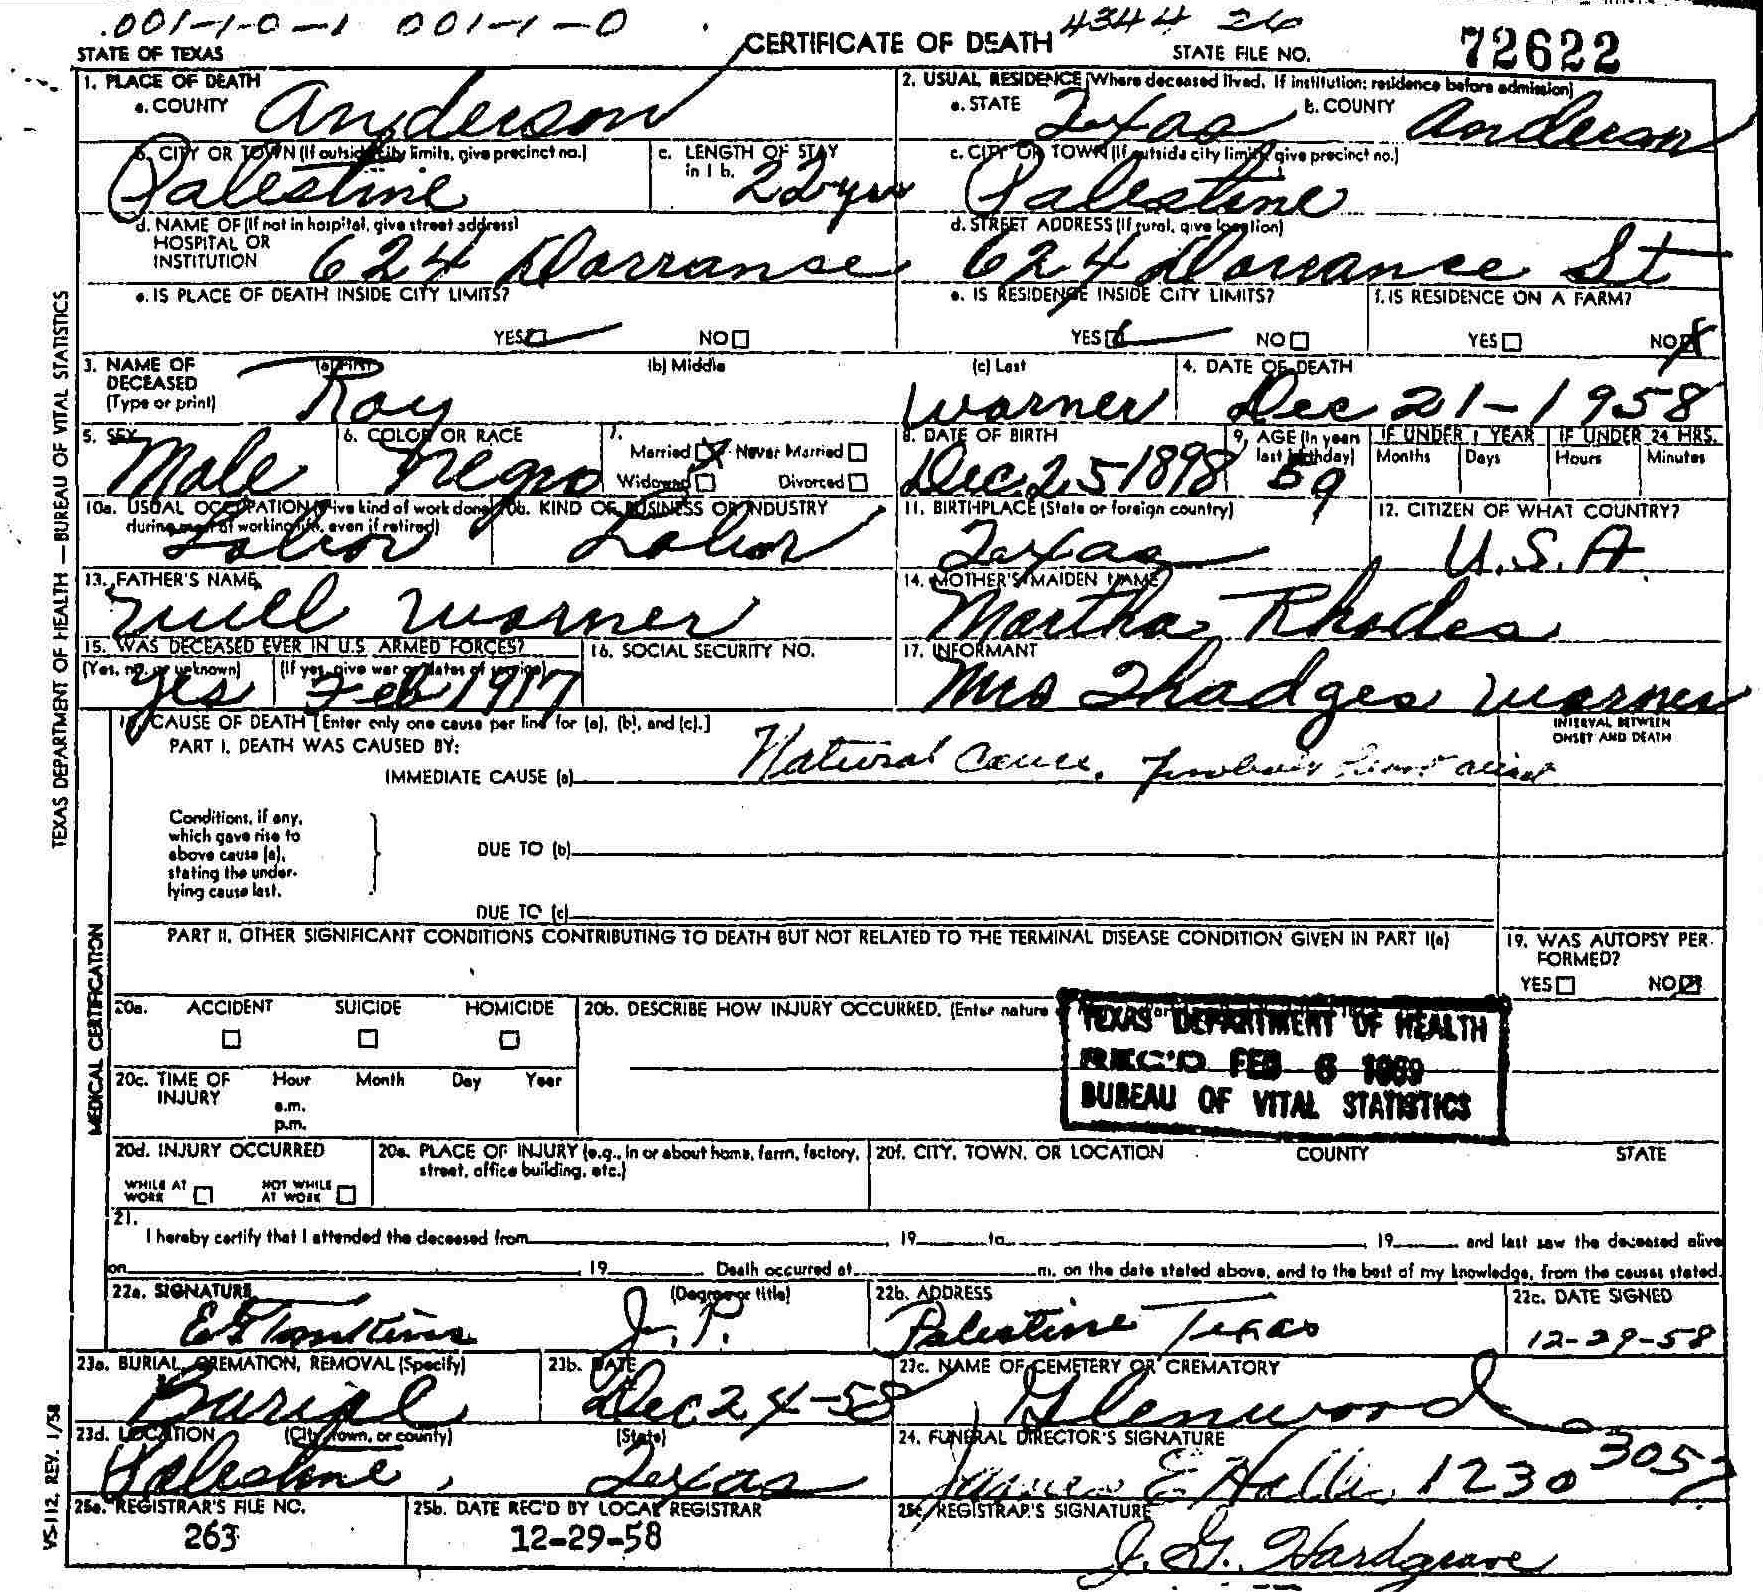 .001-1-0-1 001-1-0 4344 26
STATE OF TEXAS CERTIFICATE OF DEATH STATE FILE NO. 72622
1. PLACE OF DEATH
a. COUNTY Anderson
2. USUAL RESIDENCE (Where deceased lived. If institution: residence before admission)
a. STATE Texas b. COUNTY Anderson
b. CITY OR TOWN (If outside city limits, give precinct no.)
Palestine
c. LENGTH OF STAY in 1 b. 22 yrs
c. CITY OR TOWN (If outside city limits, give precinct no.)
Palestine
d. NAME OF (If not in hospital, give street address)
HOSPITAL OR
INSTITUTION 624 Dorranse
d. STREET ADDRESS (If rural, give location)
624 Dorrance St
e. IS PLACE OF DEATH INSIDE CITY LIMITS?
YES NO
e. IS RESIDENCE INSIDE CITY LIMITS?
YES NO
f. IS RESIDENCE ON A FARM?
YES NO X
3. NAME OF DECEASED (Type or print)
(a) First (b) Middle (c) Last
Roy Warner
4. DATE OF DEATH
Dec 21-1958
5. SEX
Male
6. COLOR OR RACE
Negro
7.
Married X Never Married
Widowed Divorced
8. DATE OF BIRTH
Dec. 25 1898
9. AGE (In years last birthday)
59
IF UNDER 1 YEAR
Months Days
IF UNDER 24 HRS.
Hours Minutes
10a. USUAL OCCUPATION (Give kind of work done during most of working life, even if retired)
Labor
10b. KIND OF BUSINESS OR INDUSTRY
Labor
11. BIRTHPLACE (State or foreign country)
Texas
12. CITIZEN OF WHAT COUNTRY?
U.S.A.
13. FATHER'S NAME
Will Warner
14. MOTHER'S MAIDEN NAME
Martha Rhodes
15. WAS DECEASED EVER IN U.S. ARMED FORCES?
(Yes, no, or unknown) (If yes, give war or dates of service)
Yes Feb 1917
16. SOCIAL SECURITY NO.
17. INFORMANT
Mrs Thadges Warner
18. CAUSE OF DEATH [Enter only one cause per line for (a), (b), and (c).]
INTERVAL BETWEEN
ONSET AND DEATH
PART I. DEATH WAS CAUSED BY:
IMMEDIATE CAUSE (a) Natural Cause,
Conditions, if any,
which gave rise to
above cause (a),
stating the under-
lying cause last.
DUE TO (b)
DUE TO (c)
PART II. OTHER SIGNIFICANT CONDITIONS CONTRIBUTING TO DEATH BUT NOT RELATED TO THE TERMINAL DISEASE CONDITION GIVEN IN PART I(a)
19. WAS AUTOPSY PER-
FORMED?
YES NO
20a. ACCIDENT SUICIDE HOMICIDE
20b. DESCRIBE HOW INJURY OCCURRED. (Enter nature
TEXAS DEPARTMENT OF HEALTH
REC'D FEB 6 1959
BUREAU OF VITAL STATISTICS
20c. TIME OF INJURY Hour Month Day Year
a.m.
p.m.
20d. INJURY OCCURRED
WHILE AT WORK NOT WHILE AT WORK
20e. PLACE OF INJURY (e.g., in or about home, farm, factory, street, office building, etc.)
20f. CITY, TOWN, OR LOCATION COUNTY STATE
21.
I hereby certify that I attended the deceased from , 19 to , 19 and last saw the deceased alive
on 19 Death occurred at m. on the date stated above, and to the best of my knowledge, from the causes stated.
22a. SIGNATURE (Degree or title)
J. P.
22b. ADDRESS
Palestine Texas
22c. DATE SIGNED
12-29-58
23a. BURIAL, CREMATION, REMOVAL (Specify)
Burial
23b. DATE
Dec 24-58
23c. NAME OF CEMETERY OR CREMATORY
Glenwood
23d. LOCATION (City, town, or county) (State)
Palestine, Texas
24. FUNERAL DIRECTOR'S SIGNATURE
James E 1230 3057
25a. REGISTRAR'S FILE NO.
263
25b. DATE REC'D BY LOCAL REGISTRAR
12-29-58
25c. REGISTRAR'S SIGNATURE
J. G. Hardgrave
TEXAS DEPARTMENT OF HEALTH — BUREAU OF VITAL STATISTICS
MEDICAL CERTIFICATION
VS-112, REV. 1/58